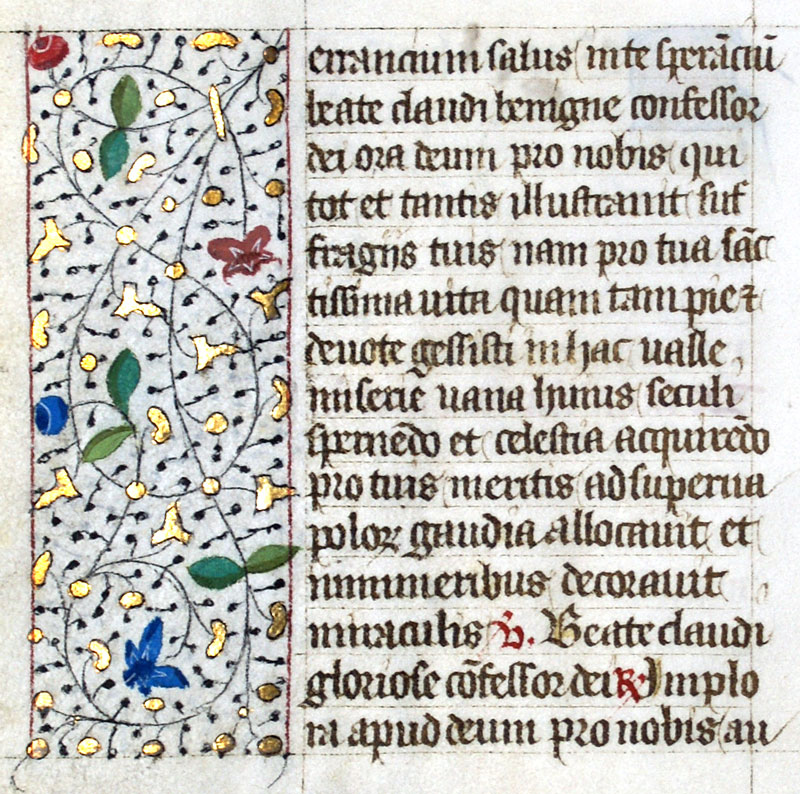 errancium salus in te sperāciū
beate claudi benigne confessor
dei ora deum pro nobis qui
tot et tantis illustrauit suf
fragijs tuis nam pro tua sāc
tissima uita quam tam pie ⁊
deuote gessisti in hac ualle
miserie uana huius seculi
spernēdo et celestia acquirēdo
pro tuis meritis ad superna
poloꝝ gaudia allocauit et
innumeribus decorauit
miraculis ℣. Beate claudi
gloriose cōfessor dei ℟ Implo
ra apud deum pro nobis au